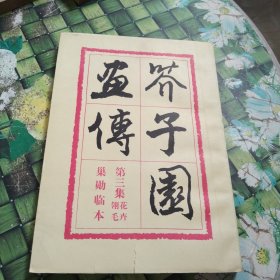 芥子園
画傳
第三集花卉翎毛
巢勋临本